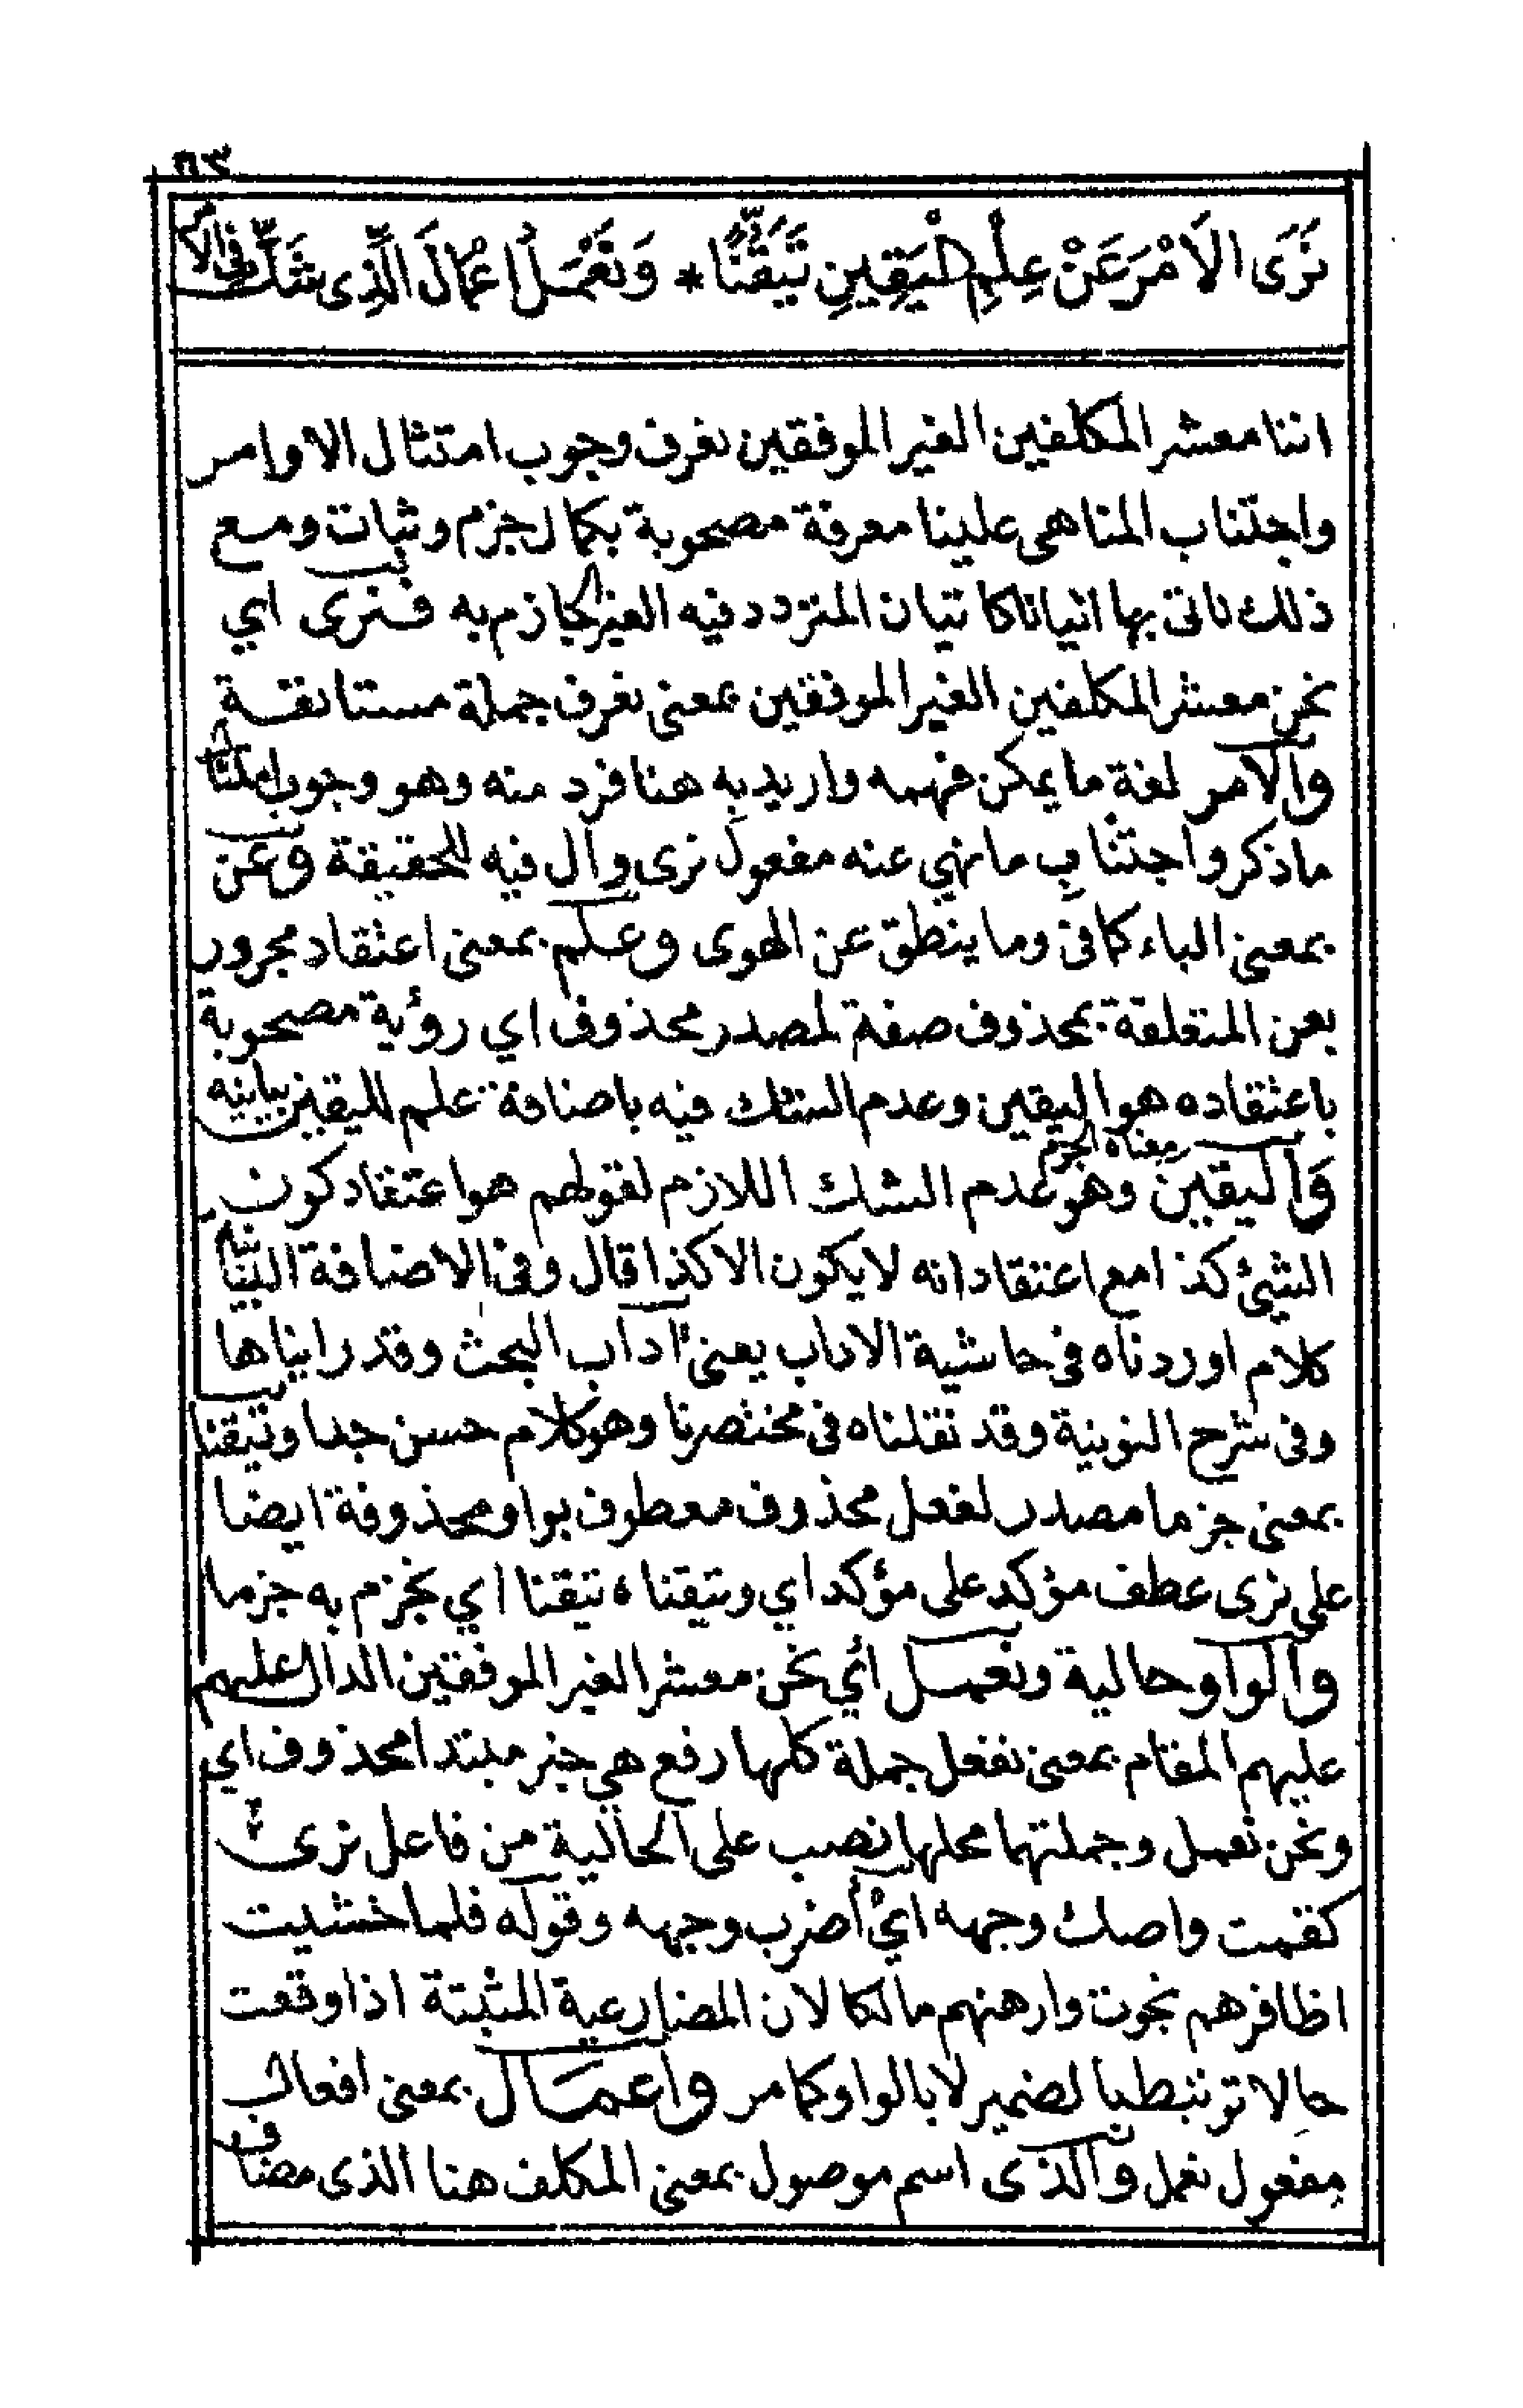 ٦٣
نَرَى الاَمْرَ عَنْ عِلْمِ الْيَقِينِ تَيَقُّنًا * وَنَعْمَلُ اعْمَالَ الَّذِى شَكَّ فى الامر
اننا معشر المكلفين الغير الموفقين نعرف وجوب امتثال الاوامر
واجتناب المناهى علينا معرفة مصحوبة بكمال جزم وثبات ومع
ذلك ناتى بها اتيانا كاتيان المتردد فيه الغير الجازم به فنرى اي
نحن معشر المكلفين الغير الموفقين بمعنى نعرف جملة مستانفة
والامر لغة ما يمكن فهمه واريد به هنا فرد منه وهو وجوب امتثال
ما ذكر واجتناب ما نهي عنه مفعول نرى وال فيه للحقيقة وعن
بمعنى الباء كما فى وما ينطق عن الهوى وعلم بمعنى اعتقاد مجرور
بعن المتعلقة بمحذوف صفة لمصدر محذوف اي رؤية مصحوبة
باعتقاده هو اليقين وعدم الشك فيه باضافة علم لليقين بيانيه
واليقين معناه الجزم وهو عدم الشك اللازم لقولهم هو اعتقاد كون
الشيئ كذا مع اعتقاد انه لا يكون الا كذا قال وفى الاضافة البيانية
كلام اوردناه فى حاشية الاداب يعنى آداب البحث وقد رايناها
وفى شرح النونية وقد نقلناه فى مختصرنا وهو كلام حسن جدا وتيقنا
بمعنى جزما مصدر لفعل محذوف معطوف بواو محذوفة ايضا
على نرى عطف مؤكد على مؤكد اي ونتيقناه تيقنا اي نجزم به جزما
والواو حالية ونعمل أي نحن معشر الغير الموفقين الدال عليهم
عليهم المقام بمعنى نفعل جملة كلها رفع هي خبر مبتدا محذوف اي
ونحن نعمل وجملتهما محلها نصب على الحالية من فاعل نرى
كقمت واصك وجهه اي أضرب وجهه وقوله فلما خشيت
اظافرهم نجوت وارهنهم مالكا لان المضارعية المثبتة اذا وقعت
حالا ترتبط بالضمير لا بالواو كما مر واعمال بمعنى افعال
مفعول نعمل والذى اسم موصول بمعنى المكلف هنا الذى مضاف